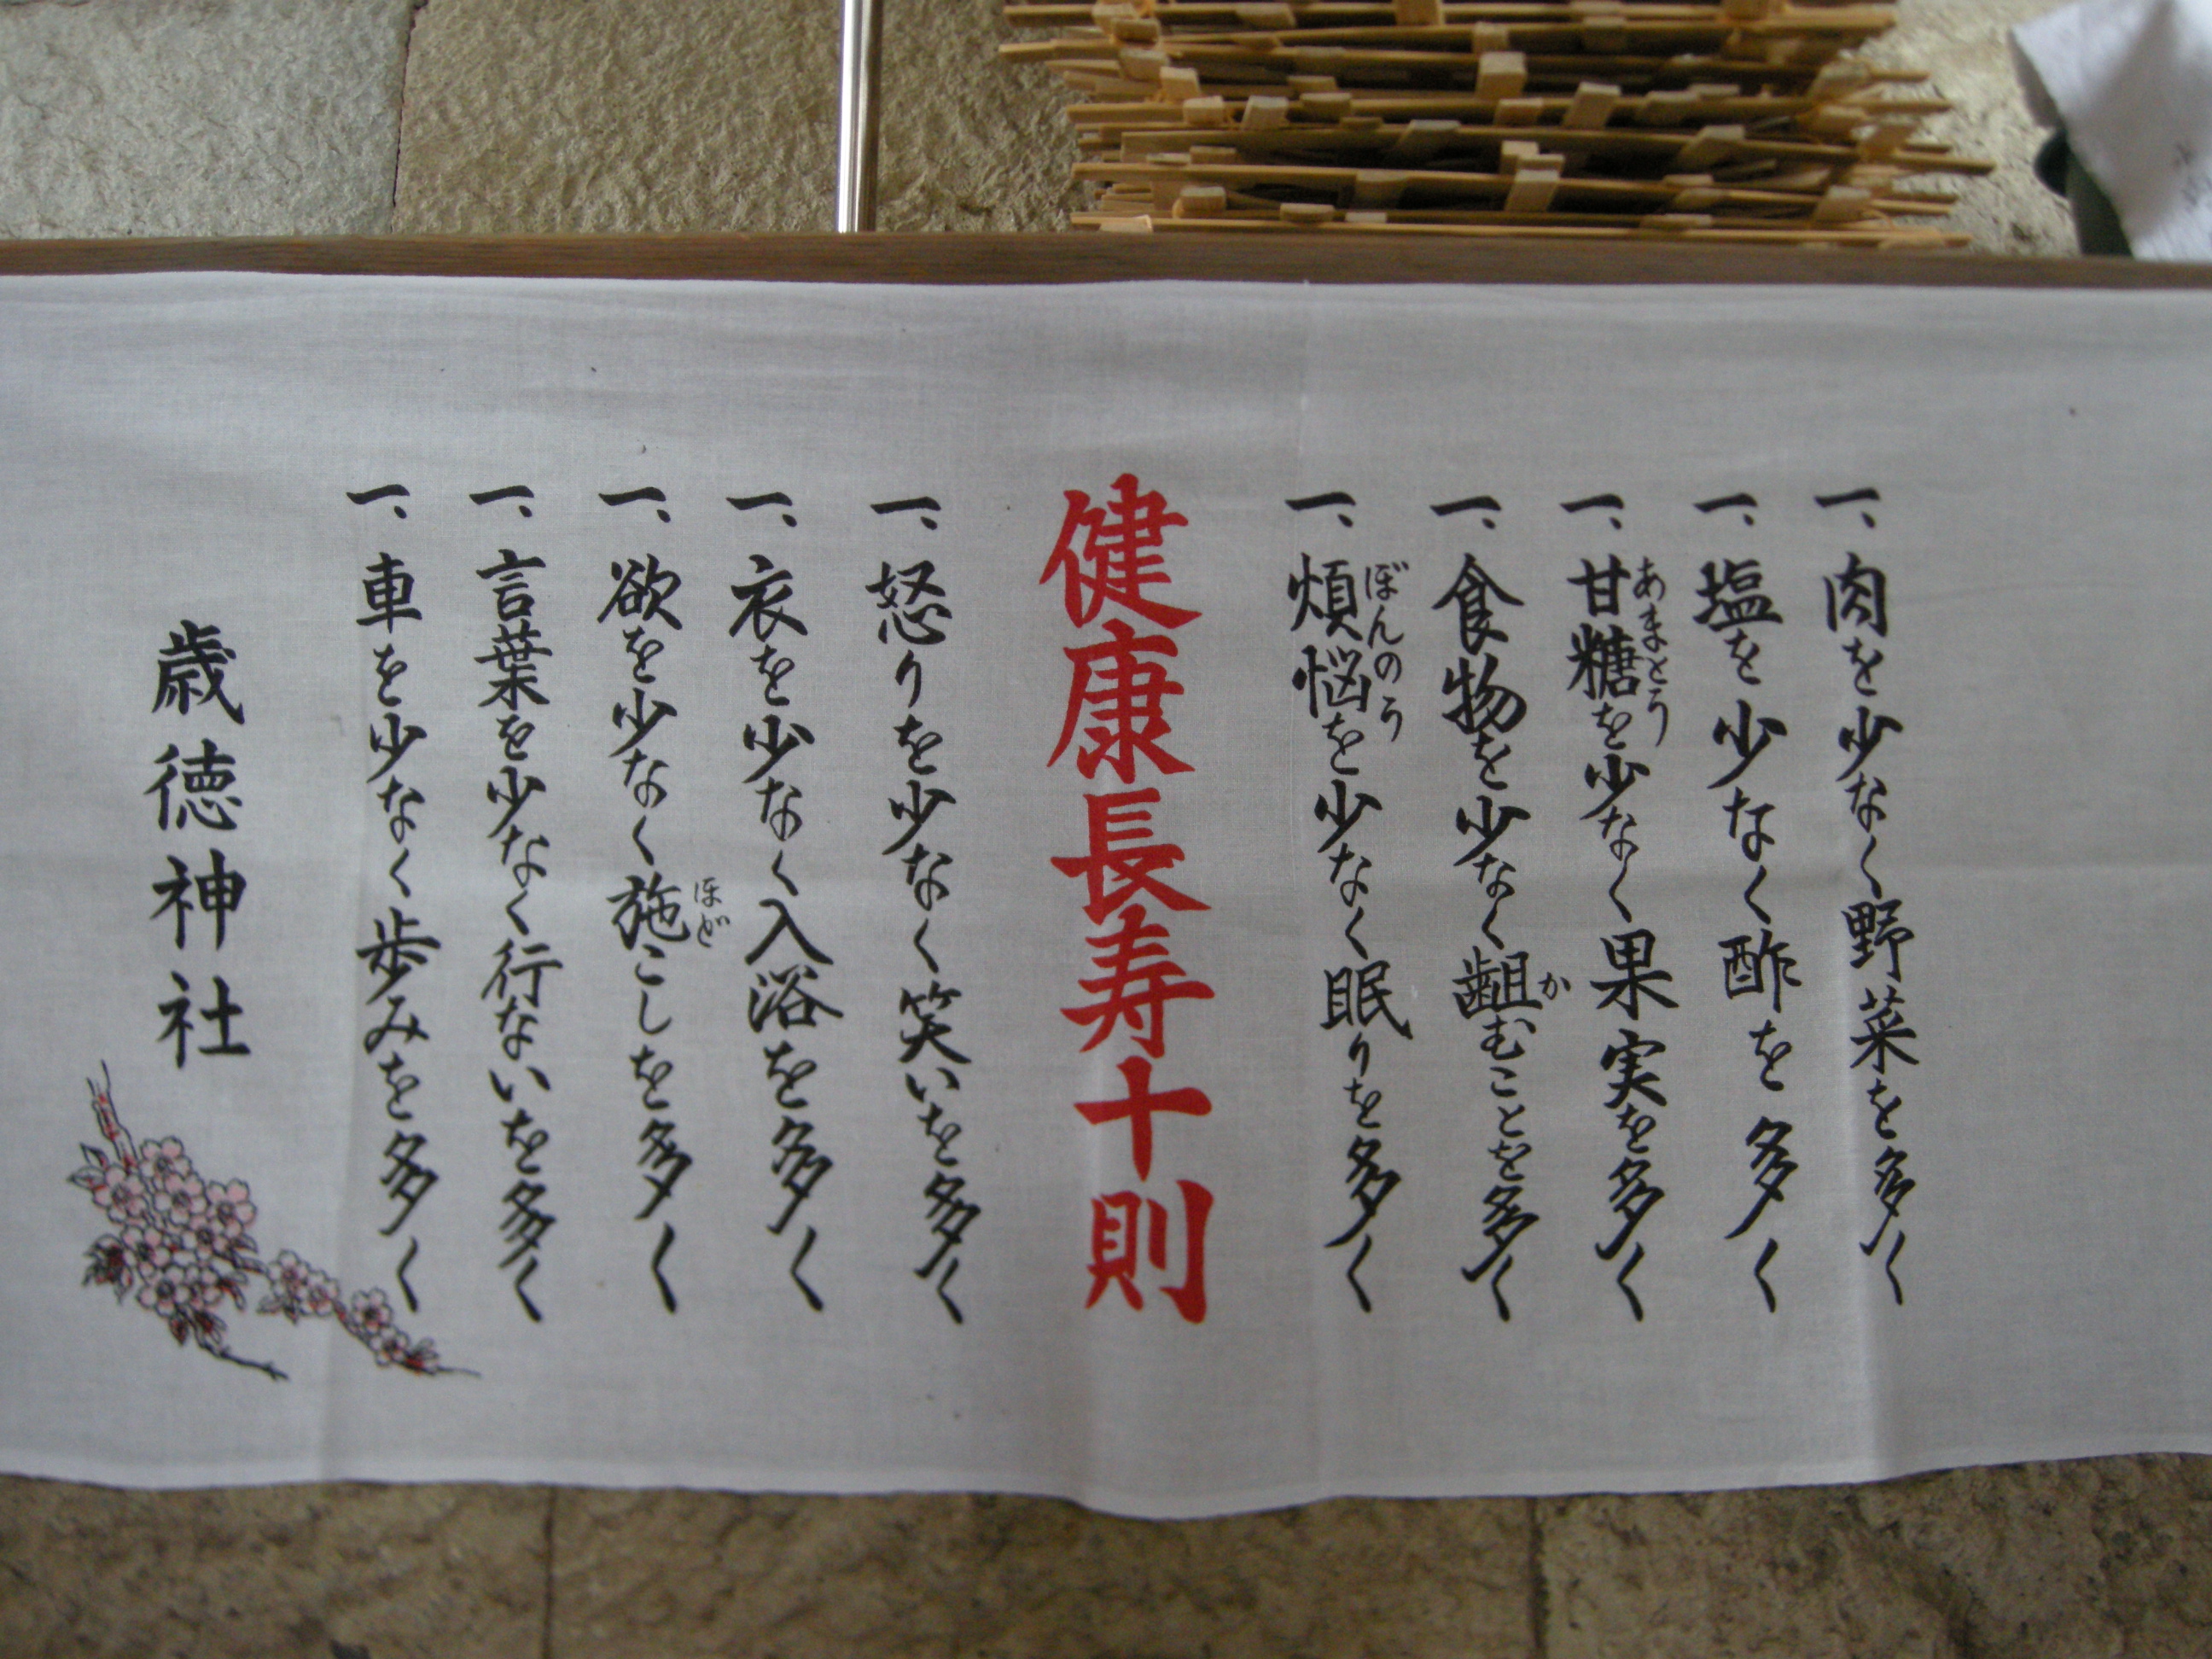 一、肉を少なく野菜を多く
一、塩を少なく酢を多く
一、甘糖を少なく果実を多く
あまとう
一、食物を少なく齟むことを多く
か
一、煩悩を少なく眠りを多く
ぼんのう
健康長寿十則
一、怒りを少なく笑いを多く
一、衣を少なく入浴を多く
一、欲を少なく施こしを多く
ほど
一、言葉を少なく行ないを多く
一、車を少なく歩みを多く
歳徳神社